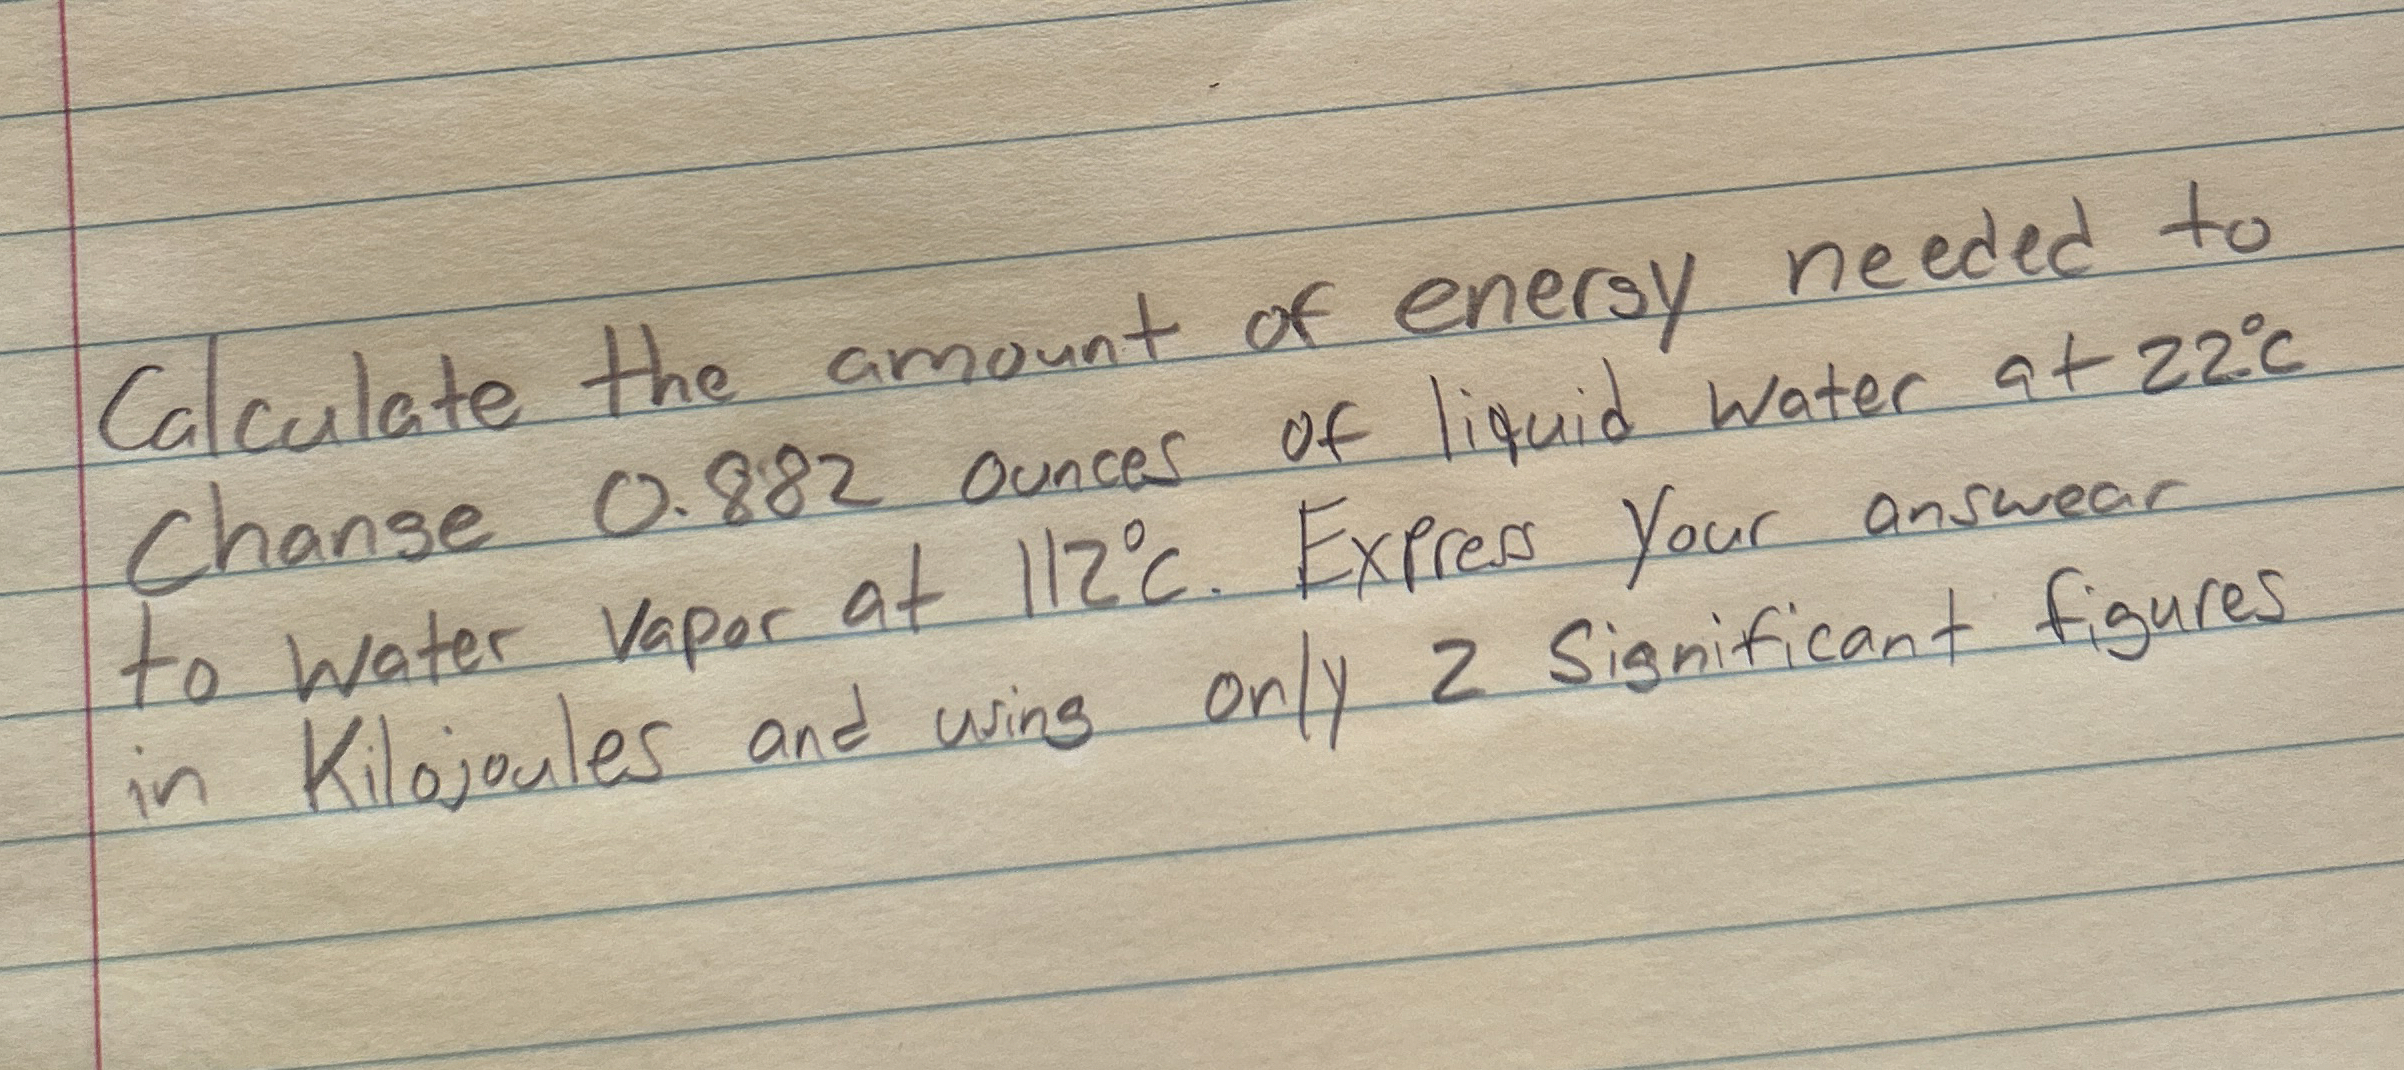 Calculate the amount of energy needed to
Change 0.882 ounces of liquid water at 22°C
to water vapor at 112°C. Express your answear
in Kilojoules and using only 2 Significant figures